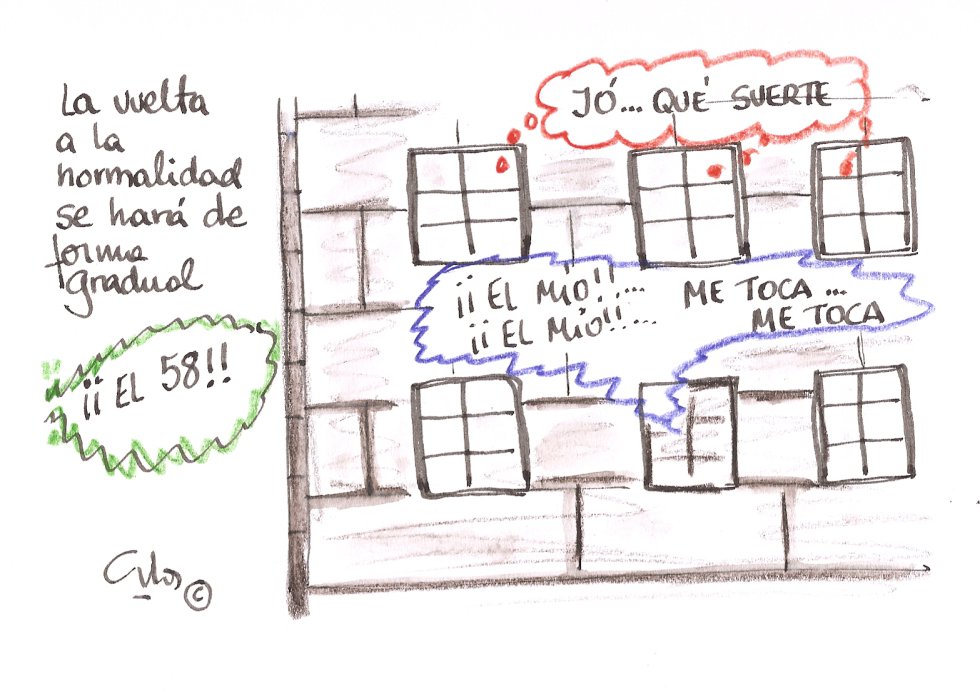 La vuelta
a la
normalidad
se hará de
forma
gradual
JÓ... QUÉ SUERTE
¡¡ EL MÍO!!... ME TOCA ...
¡¡ EL MÍO!!... ME TOCA
¡¡ EL 58!!
©